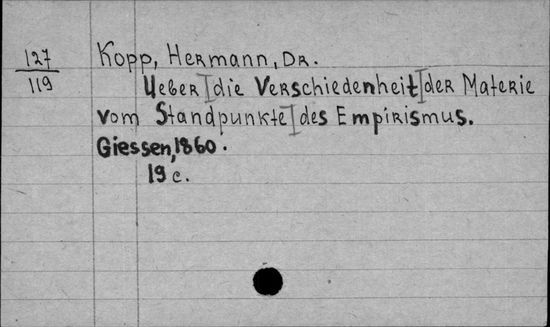 127
119
Kopp, Hermann, Dr.
Ueber die Verschiedenheit der Materie
vom Standpunkte des Empirismus.
Giessen, 1860.
19 c.